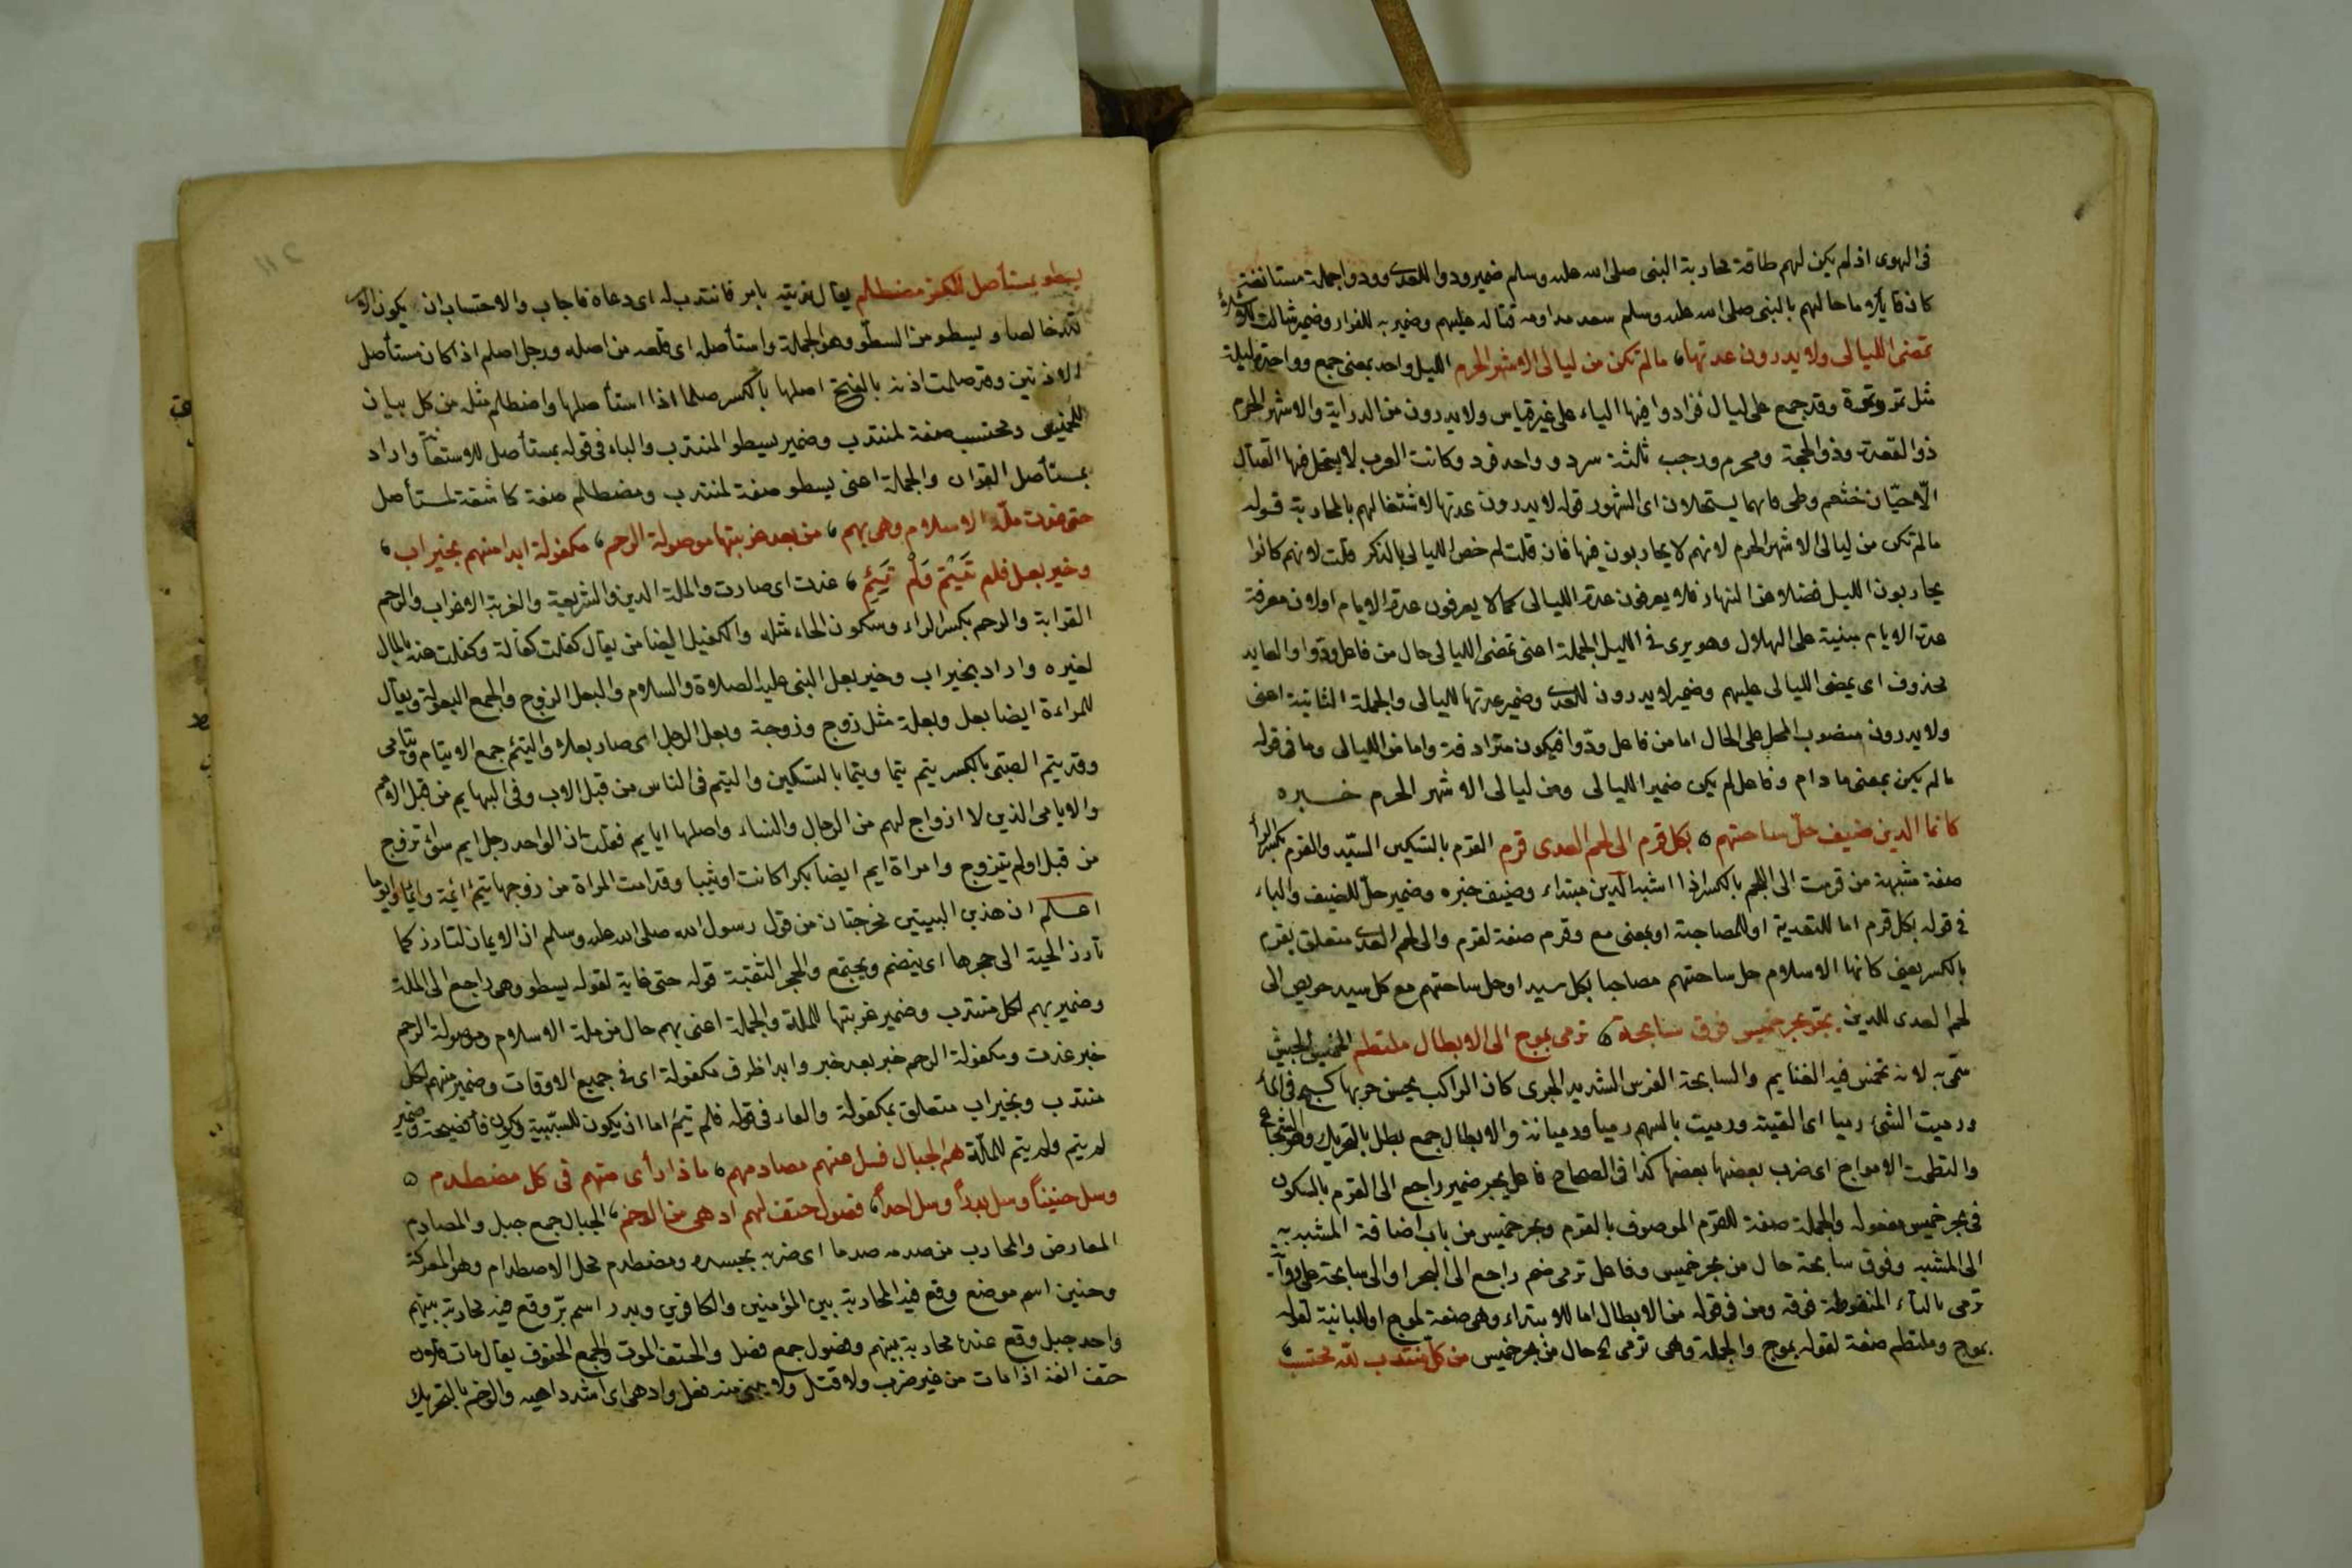 فى الهوى اذ لم يكن لهم طاقة محاربة النبى صلى الله عليه وسلم ضمير ودوا للعدى وودوا جملة مستانفة
كان قايلا ما حالهم بالنبى صلى الله عليه وسلم بعد مداومة قتاله عليهم وضمير به للفرار وضمير شالت
تمضى الليالى ولا يدرون عدتها، ما لم تكن من ليالى الاشهر الحرم الليل واحد بمعنى جمع وواحدته ليلة
مثل تمر وتمرة وقد جمع على ليال فزادوا فيها الياء على غير قياس ولا يدرون من الدراية والاشهر الحرم
ذو القعدة وذو الحجة ومحرم ورجب ثلثة سرد و واحد فرد وكانت العرب لا يستحل فيها القتال
الا حيان خثعم وطى فانهما يستحلان اى الشهور قوله لا يدرون عدتها لاشتغالهم بالمحاربة قوله
ما لم تكن من ليالى الاشهر الحرم لانهم لا يحاربون فيها فان قلت لم خص الليالى بالذكر قلت لانهم كانوا
يحاربون الليل فضلا عن النهار فلا يعرفون عدة الليالى كما لا يعرفون عدة الايام او لان معرفة
عدة الايام مبنية على الهلال وهو يرى فى الليل الجملة اعنى تمضى الليالى حال من فاعل ودوا والعايد
محذوف اى يمضى الليالى عليهم وضمير لا يدرون للعدى وضمير عدتها لليالى والجملة الثانية اعنى
ولا يدرون منصوب المحل على الحال اما من فاعل ودوا فيكون مترادفة واما من الليالى وما فى قوله
ما لم يكن بمعنى ما دام وفاعل لم يكن ضمير الليالى ومن ليالى الاشهر الحرم خبره
كانما الدين ضيف حل ساحتهم ٥ بكل قرم الى لحم العدى قرم القرم بالتسكين السيد والقرم بكسر الراء
صفة مشبهة من قرمت الى اللحم بالكسر اذا اشتد الدين مبتداء وضيف خبره وضمير حل للضيف والباء
فى قوله بكل قرم اما للتعدية او للمصاحبة او بمعنى مع وقرم صفة لقرم والى لحم العدى متعلق بقرم
بالكسر يعنى كانها الاسلام حل ساحتهم مصاحبا بكل سيد او حل ساحتهم مع كل سيد حريص الى
لحم العدى للدين يجر بحر خميس فوق سابحة ٥ ترمى بموج الى الابطال ملتطم الخميس الجيش
سمى به لانه تخمس فيه الغنايم والسابحة الفرس الشديد الجرى كان الراكب يحسن جريها
ورميت الشئ رميا اى القيته ورميت بالسهم رميا ورميانة والابطال جمع بطل بالتحريك وهو الشجاع
والتطمت الامواج اى ضرب بعضها بعضها كذا فى الصحاح فاعل يجر ضمير راجع الى القرم بالسكون
فى بحر خميس مفعوله والجملة صفة للقرم الموصوف بالقرم وبحر خميس من باب اضافة المشبه به
الى المشبه وفوق سابحة حال من بحر خميس وفاعل ترمى ضم راجع الى البحر او الى سابحة على رواية
ترمى بالتاء المنقوطة فوقه ومن فى قوله من الابطال اما للابتداء وهى صفة لموج او للبيانية لقوله
بموج وملتطم صفة لقوله بموج والجملة وهى ترمى الخ حال من بحر خميس من كل منتدب لله محتسب
يسطو بمستأصل للكفر مصطلم يقال ندبته بامر فانتدب له اى دعاه فاجاب والاحتساب ان يكون الامر
لله خالصا و يسطو من السطو وهو الحملة واستأصله اى قلعه من اصله ورجل اصلم اذا كان مستأصل
الاذنين وقد صلمت اذنه بالفتح اصلها بالكسر صلما اذا استأصلها واصطلم مثله من كل بيان
للخميس ومحتسب صفة لمنتدب وضمير يسطو المنتدب والباء فى قوله بمستأصل للاستعانة واراد
بمستأصل القران والجملة اعنى يسطو صفة لمنتدب ومصطلم صفة كاشفة لمستأصل
حتى غدت ملة الاسلام وهى بهم، من بعد غربتها موصولة الرحم، مكفولة ابدا منهم بخير اب،
وخير بعل فلم تَيْتَمْ وَلَمْ تَئِمِ، غدت اى صارت والملة الدين والشريعة والغربة الاغتراب والرحم
القرابة والرحم بكسر الراء وسكون الحاء مثله والكفيل الضامن يقال كفلت كفالة وكفلت عنه بالمال
لغيره واراد بخير اب وخير بعل النبى عليه الصلاة والسلام والبعل الزوج والجمع البعولة ويقال
للمراءة ايضا بعل وبعلة مثل زوج وزوجة وبعل الرجل اى صار بعلا واليتم جمع الايتام ويتامى
وقد يتم الصبى بالكسر يتم يتما ويتما بالتسكين واليتم فى الناس من قبل الاب وفى البهايم من قبل الام
والايامى الذين لا ازواج لهم من الرجال والنساء واصلها ايايم فقلبت اذ الواحد رجل ايم سواء تزوج
من قبل او لم يتزوج وامراة ايم ايضا بكرا كانت او ثيبا وقد امت المراة من زوجها تئيم ائمة وايما وايوما
اعلم ان هذين البيتين مخرجتان من قول رسول الله صلى الله عليه وسلم ان الايمان لتارز كما
تارز الحية الى جحرها اى ينضم ويجتمع والحجر الثقبة قوله حتى غاية لقوله يسطو وهى راجع الى الملة
وضمير بهم لكل منتدب وضمير غربتها للملة والجملة اعنى بهم حال من ملة الاسلام وموصولة الرحم
خبر غدت ومكفولة الرحم خبر بعد خبر وابدا ظرف مكفولة اى فى جميع الاوقات وضمير منهم لكل
منتدب وبخير اب متعلق بمكفولة والفاء فى قوله فلم تيتم اما ان يكون للسببية ويكون فأ فصيحة وضمير
لم يتم ولم يتم للملة هم الجبال فسل عنهم مصادمهم، ماذا رأى منهم فى كل مصطدم ٥
وسل حنيناً وسل بدراً وسل احداً، فصول حتف لهم ادهى من الوخم، الجبال جمع جبل والمصادم
المعارض والمحارب من صدمه صدما اى ضربه بجسده ومصطدم محل الاصطدام وهو المعركة
وحنين اسم موضع وقع فيه المحاربة بين المؤمنين والكافرين وبدر اسم بئر وقع فيه محاربة بينهم
واحد جبل وقع عنده محاربة بينهم وفصول جمع فصل والحتف الموت والجمع الحتوف يقال مات فلان
حتف انفه اذا مات من غير ضرب ولا قتل ولا يبنى منه فعل وادهى اى اشد داهية والوخم بالتحريك